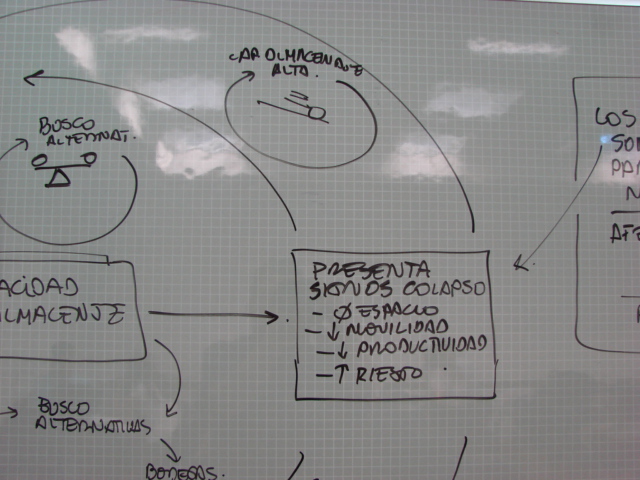 CAP ALMACENAJE
ALTA.
BUSCO
ALTERNAT.
LOS
SON
PAR
N
AFE
ACIDAD
ALMACENJE
PRESENTA
SIGNOS COLAPSO
- Ø ESPACIO
- ↓ MOVILIDAD
- ↓ PRODUCTIVIDAD
- ↑ RIESGO
BUSCO
ALTERNATIVAS
BODEGAS.